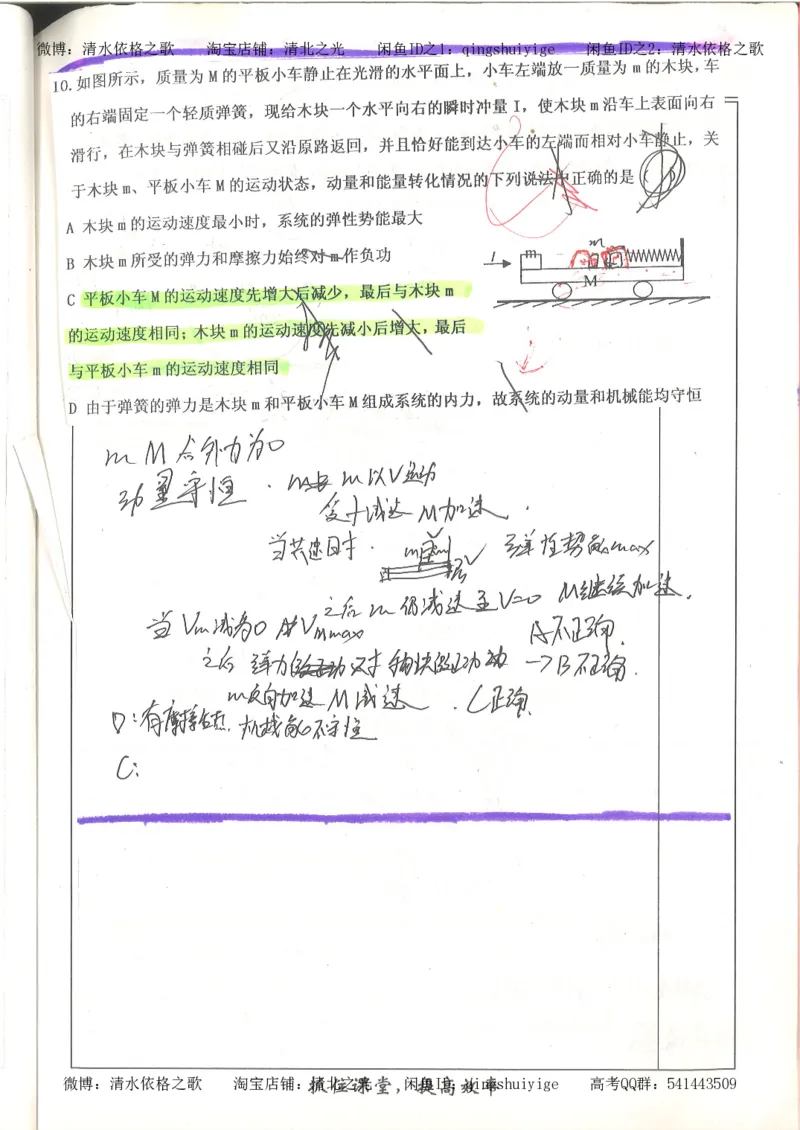 微博：清水依格之歌 淘宝店铺：清北之光 闲鱼ID之1：qingshuiyige 闲鱼ID之2：清水依格之歌
10.如图所示，质量为 M 的平板小车静止在光滑的水平面上，小车左端放一质量为 m 的木块，车
的右端固定一个轻质弹簧，现给木块一个水平向右的瞬时冲量 I，使木块 m 沿车上表面向右
滑行，在木块与弹簧相碰后又沿原路返回，并且恰好能到达小车的左端而相对小车静止，关
于木块 m、平板小车 M 的运动状态，动量和能量转化情况的下列说法中正确的是（ ）
A 木块 m 的运动速度最小时，系统的弹性势能最大
B 木块 m 所受的弹力和摩擦力始终对 m 作负功
C 平板小车 M 的运动速度先增大后减少，最后与木块 m
的运动速度相同；木块 m 的运动速度先减小后增大，最后
与平板小车 m 的运动速度相同
D 由于弹簧的弹力是木块 m 和平板小车 M 组成系统的内力，故系统的动量和机械能均守恒
I m m
M
m M 合外力为0
动量守恒. m以V运动
受f减速 M加速.
当共速时. 弹性势能max
之后 m 仍减速至V=0 M继续加速.
当 Vm减为0 时VMmax A不正确.
之后 弹力 对 物块做正功 → B不正确.
m反向加速 M减速. C正确.
D：有摩擦生热. 机械能不守恒
C：
微博：清水依格之歌 淘宝店铺：清北之光 闲鱼ID：qingshuiyige 高考QQ群：541443509
抓住课堂，提高效率